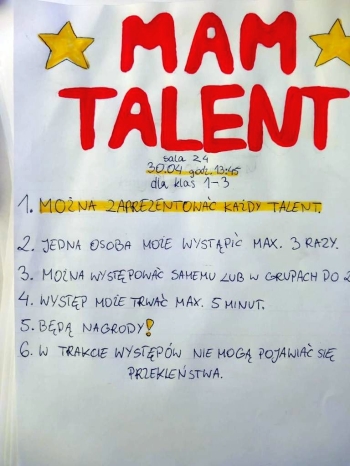 MAM
TALENT
sala 24
30.04 godz. 13:45
dla klas 1-3
1. MOŻNA ZAPREZENTOWAĆ KAŻDY TALENT.
2. JEDNA OSOBA MOŻE WYSTĄPIĆ MAX. 3 RAZY.
3. MOŻNA WYSTĘPOWAĆ SAMEMU LUB W GRUPACH DO
4. WYSTĘP MOŻE TRWAĆ MAX. 5 MINUT.
5. BĘDĄ NAGRODY!
6. W TRAKCIE WYSTĘPÓW NIE MOGĄ POJAWIAĆ SIĘ
PRZEKLEŃSTWA.